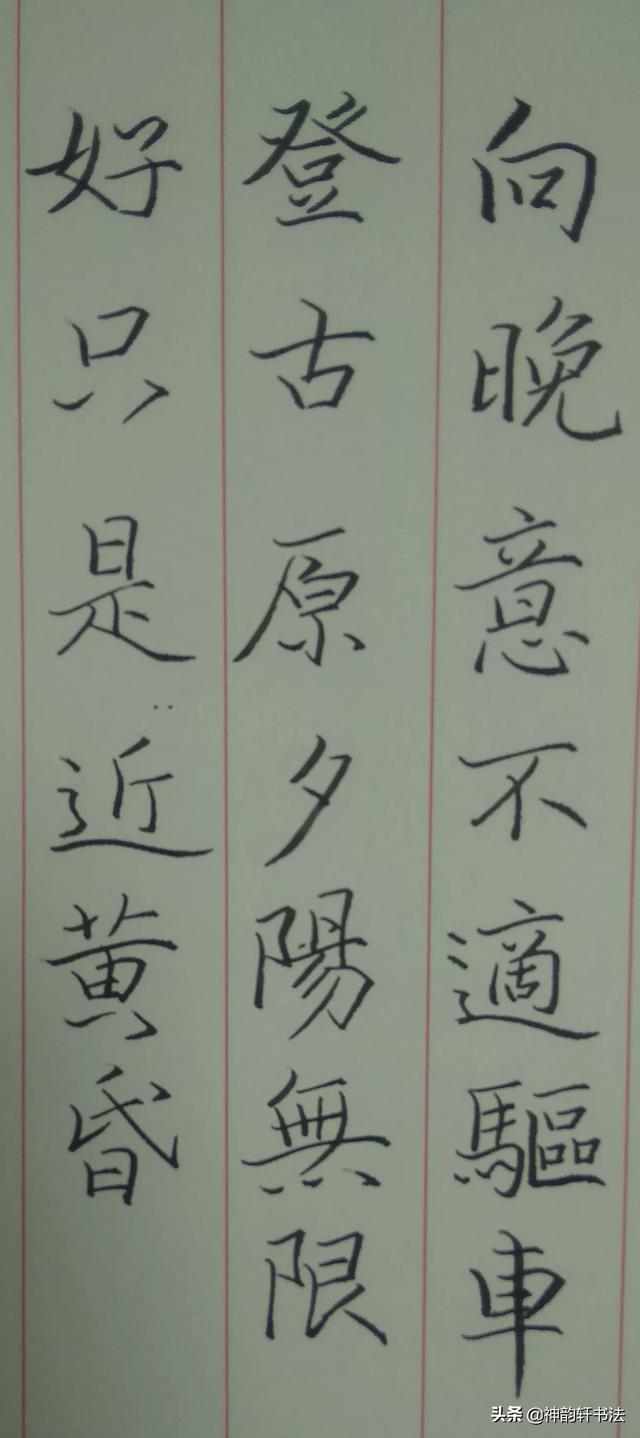 向晚意不適驅車
登古原夕陽無限
好只是近黄昏
头条 @神韵轩书法